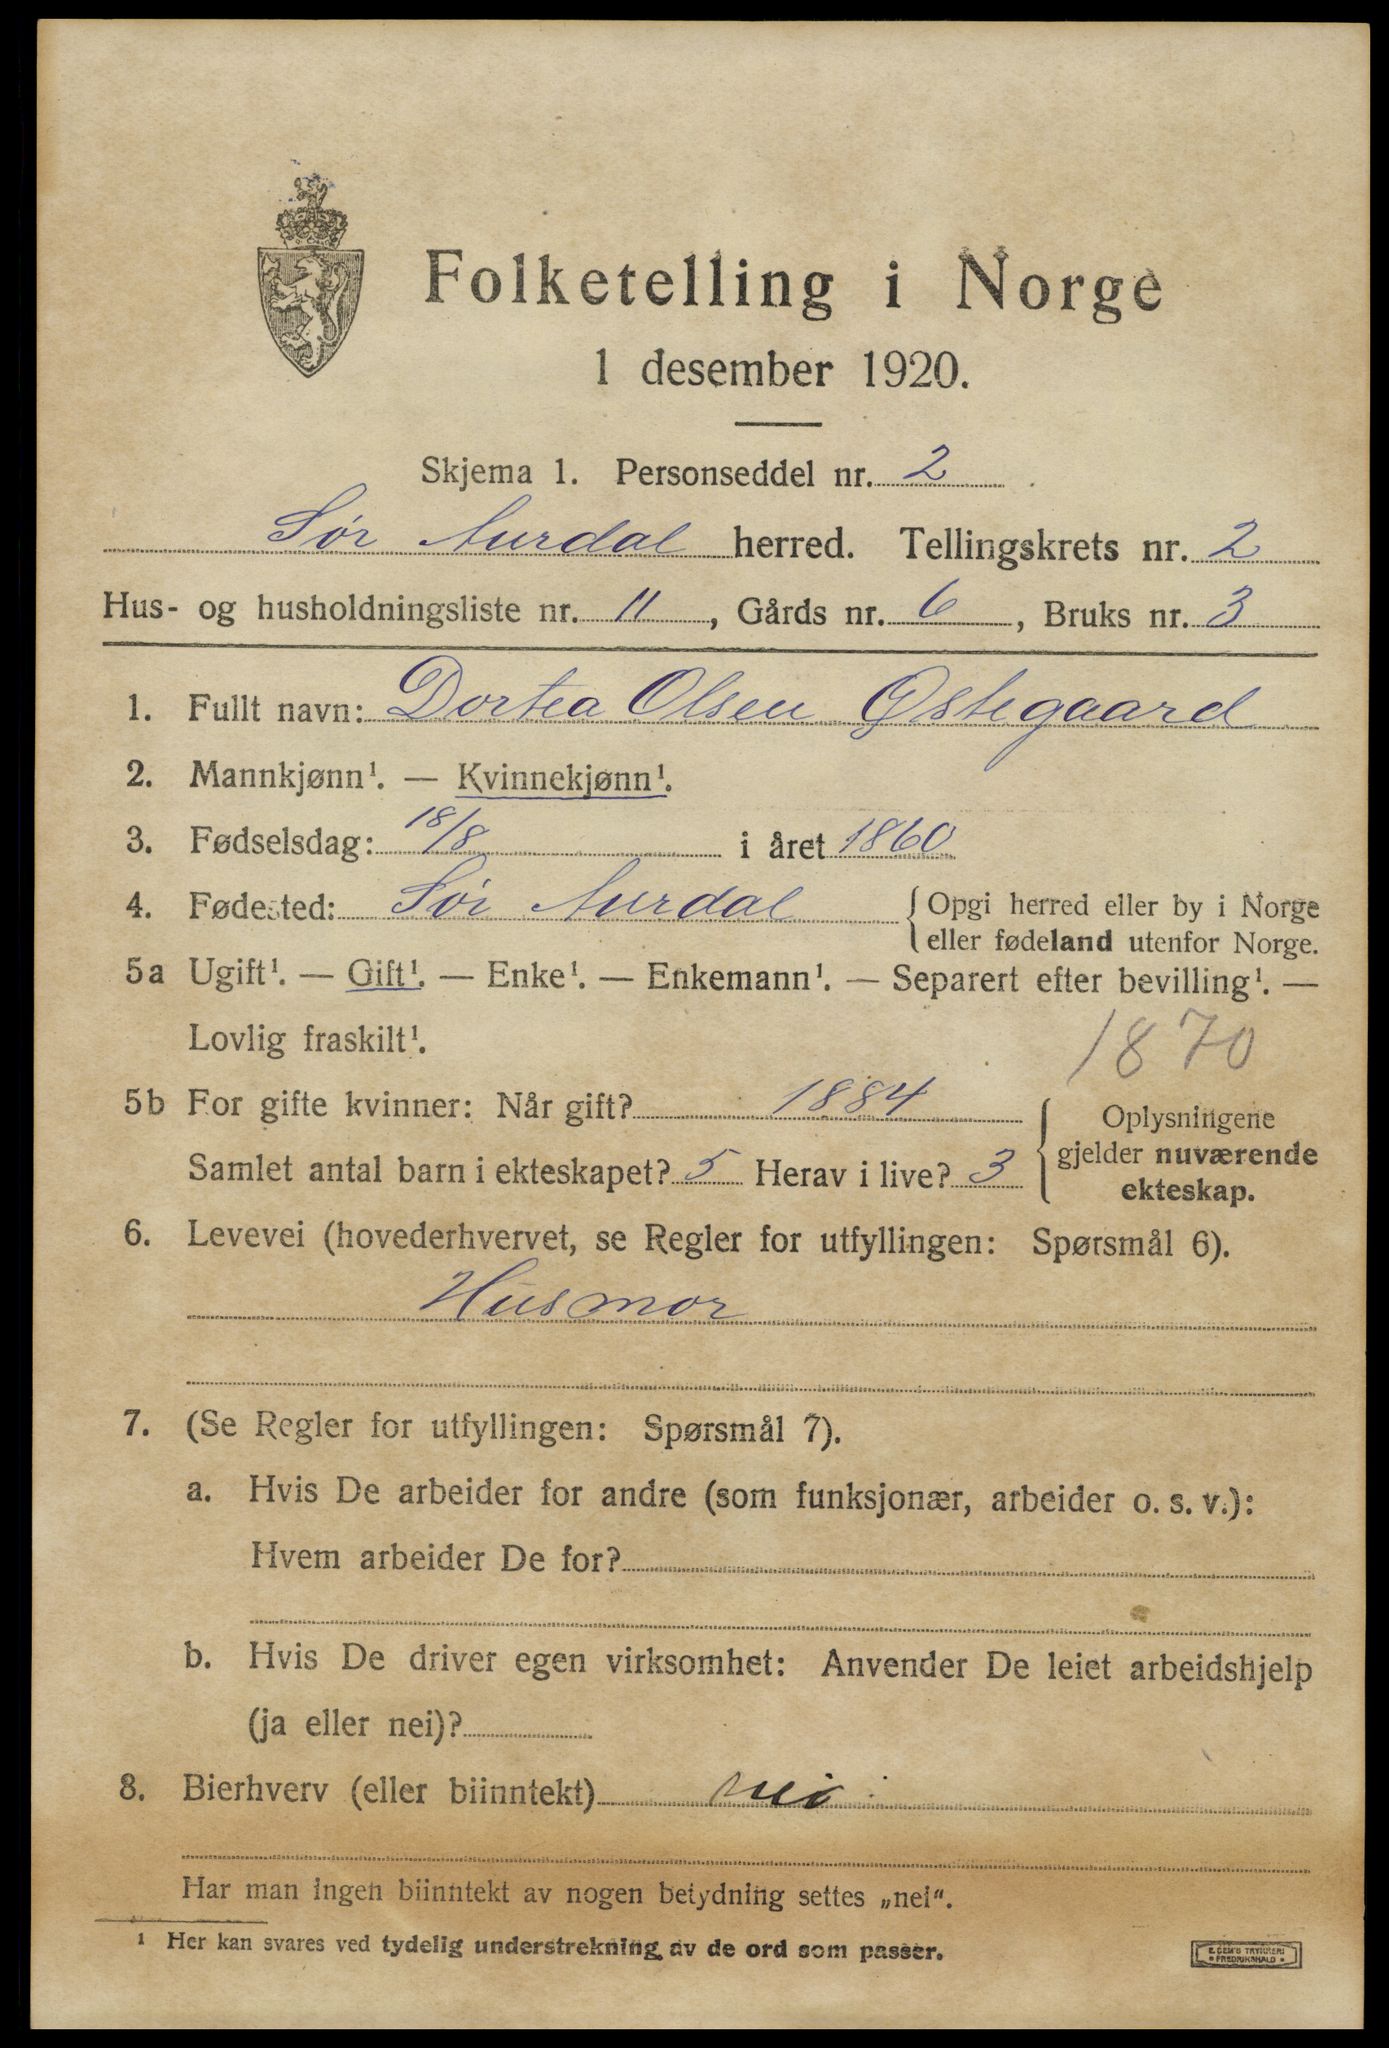 Folketelling i Norge
1 desember 1920.
Skjema 1. Personseddel nr. 2
Sør Aurdal herred. Tellingskrets nr. 2
Hus- og husholdningsliste nr. 11, Gårds nr. 6, Bruks nr. 3
1. Fullt navn: Dortea Olsen Østegaard
2. Mannkjønn¹. — Kvinnekjønn¹.
3. Fødselsdag: 18/8 i året 1860
4. Fødested: Sør Aurdal { Opgi herred eller by i Norge
eller fødeland utenfor Norge.
5a Ugift¹. — Gift¹. — Enke¹. — Enkemann¹. — Separert efter bevilling¹. —
Lovlig fraskilt¹.
1870
5b For gifte kvinner: Når gift? 1884
Samlet antal barn i ekteskapet? 5 Herav i live? 3
{ Oplysningene
gjelder nuværende
ekteskap.
6. Levevei (hovederhvervet, se Regler for utfyllingen: Spørsmål 6).
Husmor
7. (Se Regler for utfyllingen: Spørsmål 7).
a. Hvis De arbeider for andre (som funksjonær, arbeider o. s. v.):
Hvem arbeider De for?
b. Hvis De driver egen virksomhet: Anvender De leiet arbeidshjelp
(ja eller nei)?
8. Bierhverv (eller biinntekt) nei
Har man ingen biinntekt av nogen betydning settes „nei“.
¹ Her kan svares ved tydelig understrekning av de ord som passer.
E. SEM'S TRYKKERI
FREDRIKSHALD